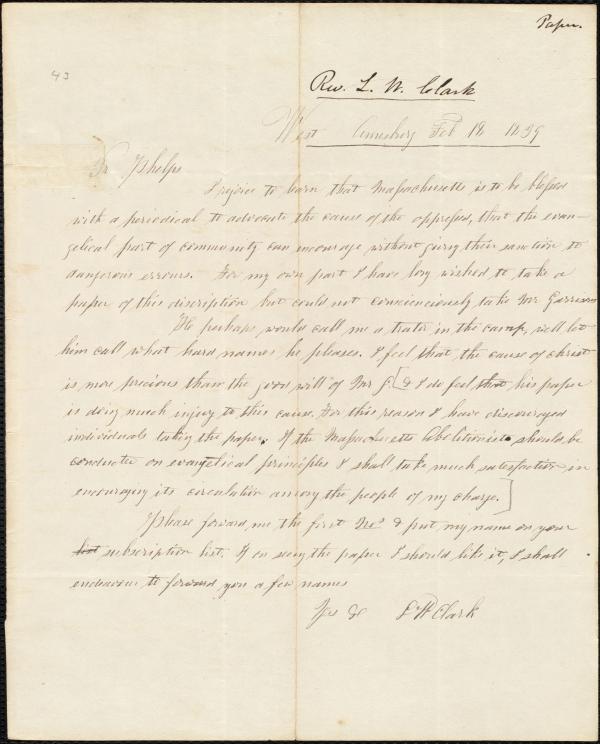 Paper.
43
Rev. L. W. Clark
West Amesbury Feb 18 1839
Br Phelps
I rejoice to learn that Massachusetts is to be blessed
with a periodical to advocate the cause of the oppressed, that the evan-
gelical part of community can encourage without giving their sanction to
dangerous errours. For my own part I have long wished to take a
paper of this discription but could not conscienciously take Mr Garrisons
He perhaps would call me a trator in the camp, well let
him call what hard names he pleases. I feel that the cause of christ
is more precious than the good will of Mr G. [& I do feel that his paper
is doing much injury to this cause. For this reason I have discouraged
individuals taking the paper. If the Massachusetts Abolitionist should be
conducted on evangelical principles I shall take much satisfaction in
encouraging its circulation among the people of my charge.]
Please forward me the first No. & put my name on your
list subscription list. If on seeing the paper I should like it, I shall
endeavour to forward you a few names
Yrs &c L W Clark